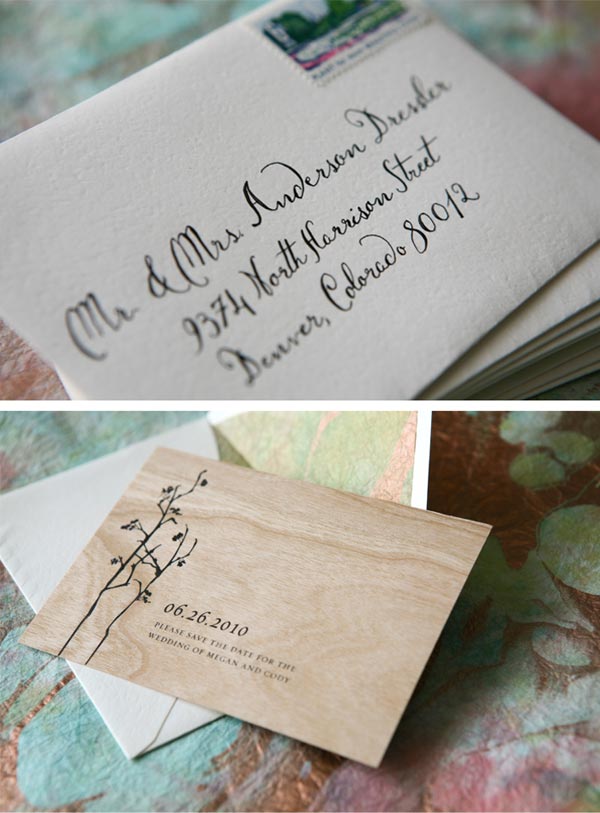 PLANT
Mr. & Mrs. Anderson Dresder
9374 North Harrison Street
Denver, Colorado 80012
06.26.2010
PLEASE SAVE THE DATE FOR THE
WEDDING OF MEGAN AND CODY